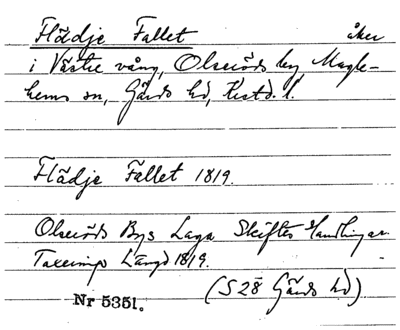 Flädje Fallet åker
i Västre vång, Olseröds by, Magle-
hems sn, Gärds hd, Krstd. l.
Flädje Fallet 1819.
Olseröds Bys Laga Skiftes Handlingar.
Taxerings Längd 1819.
(S 28 Gärds hd)
Nr 5351.